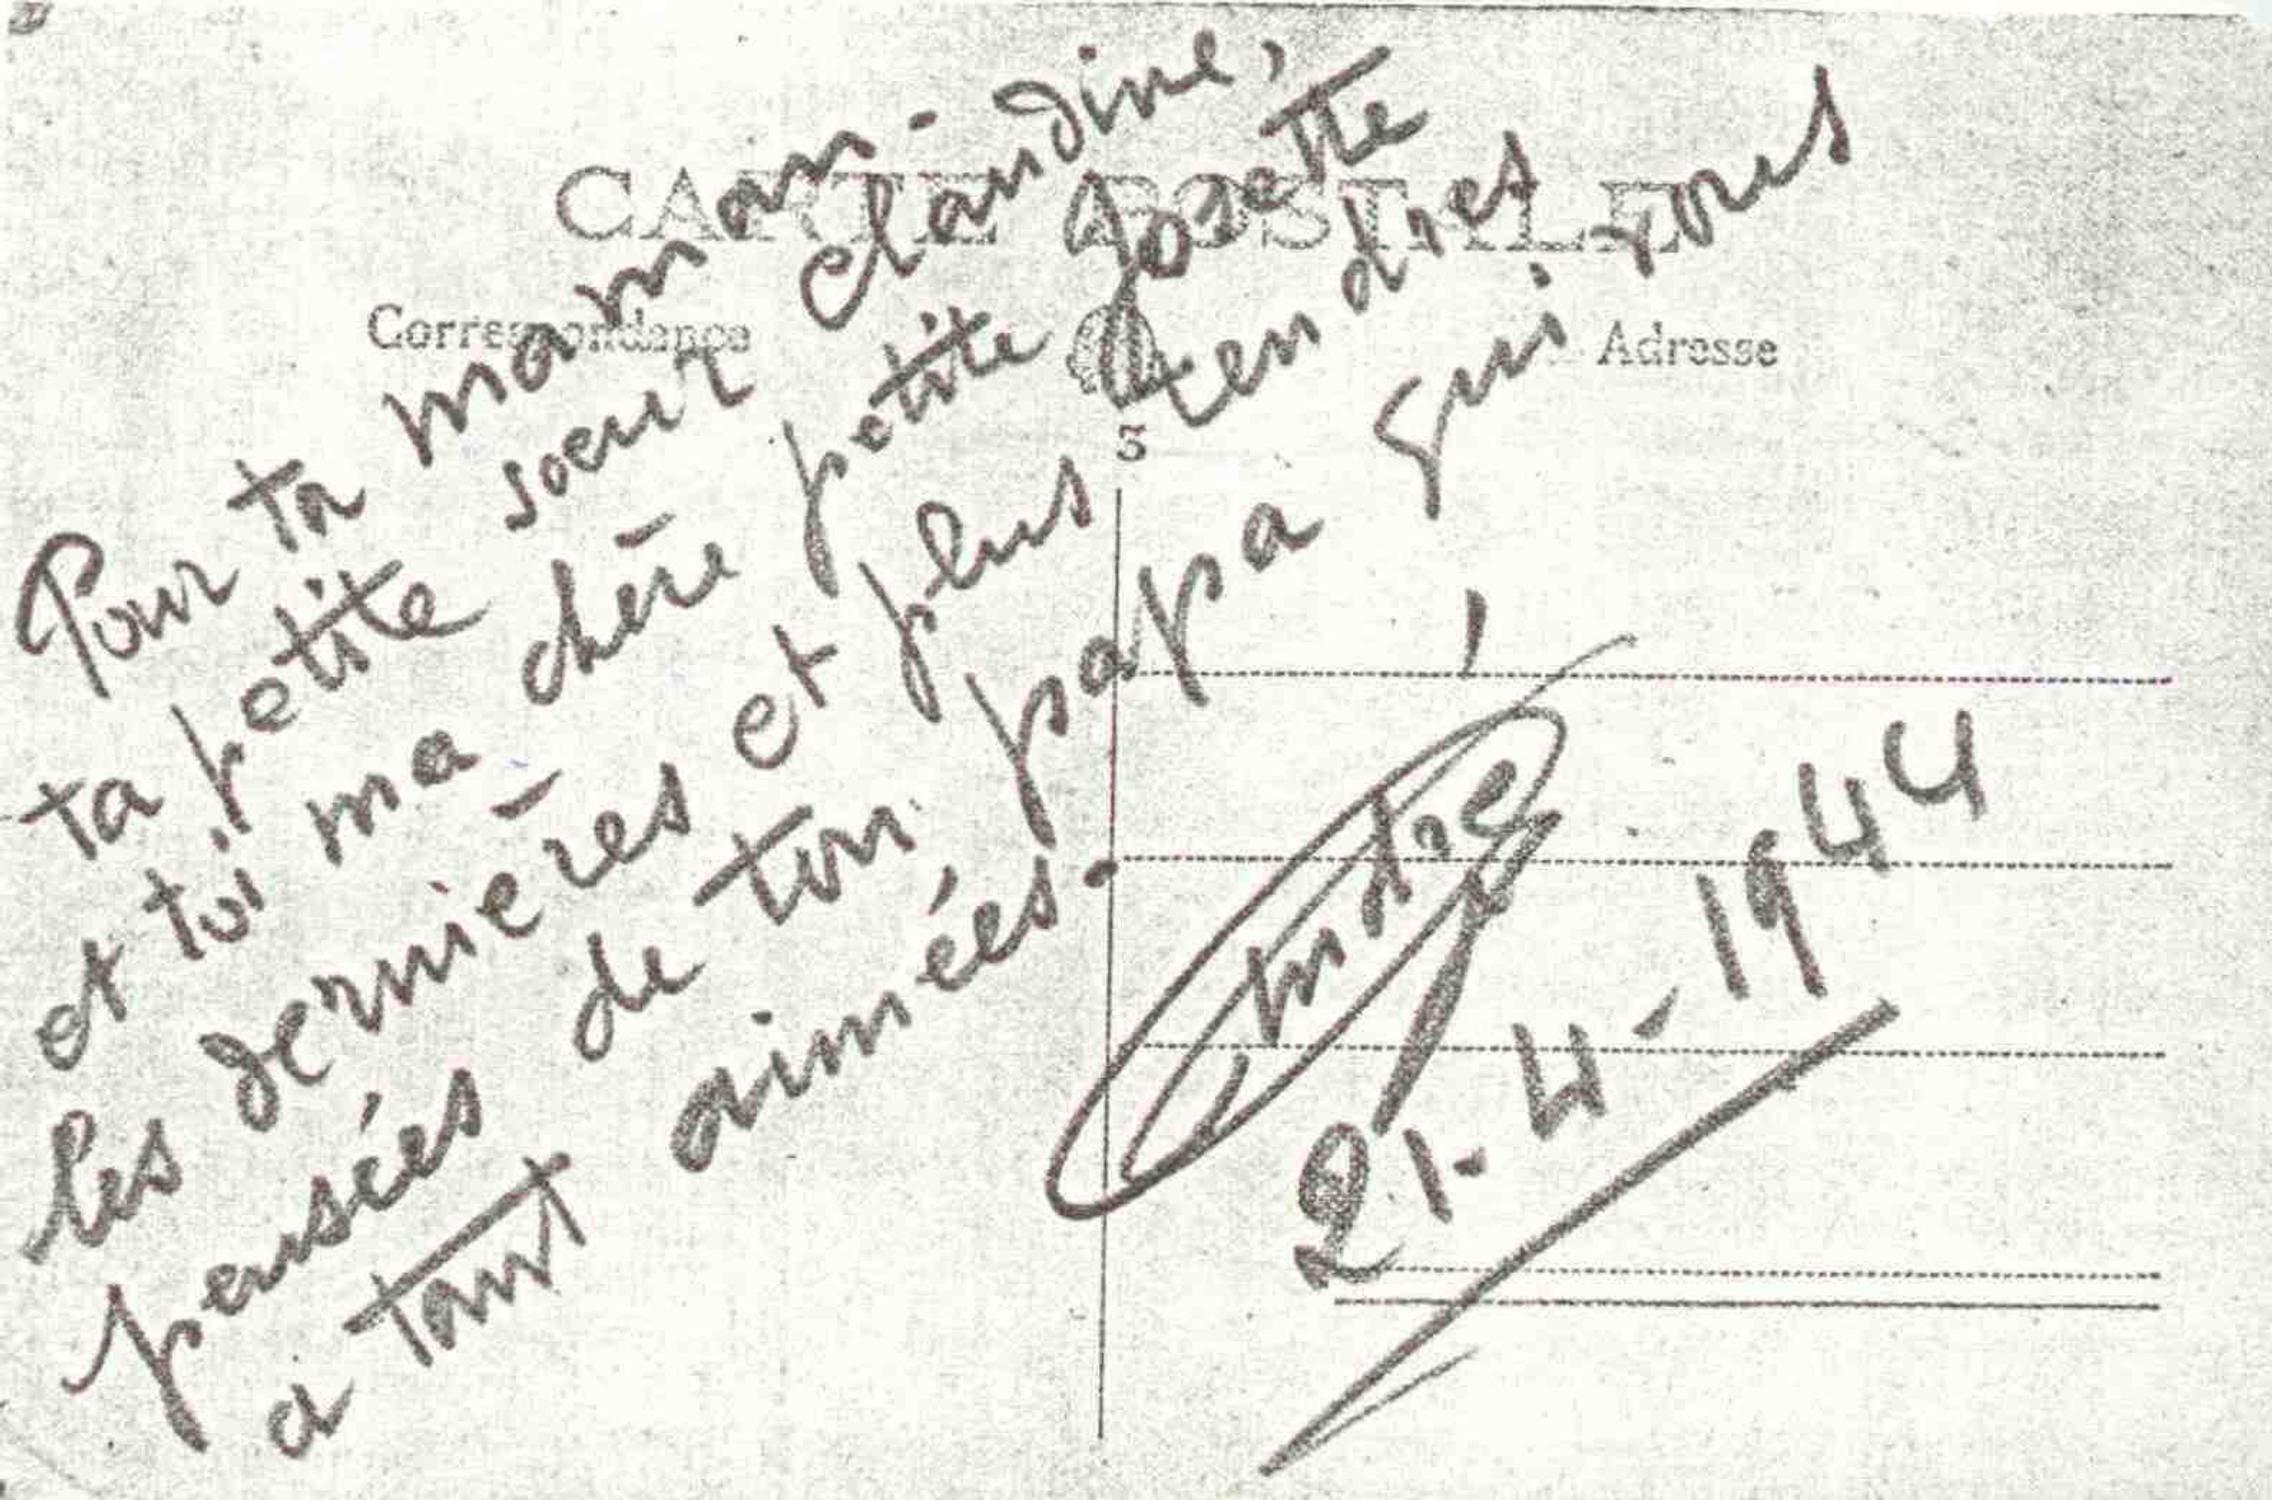 CARTE POSTALE
Correspondance
Adresse
S
Pour ta maman -
ta petite soeur Claudine,
et toi ma chère petite Josette
les dernières et plus tendres
pensées de ton papa qui vous
a tant aimées. !
André
21.4-1944